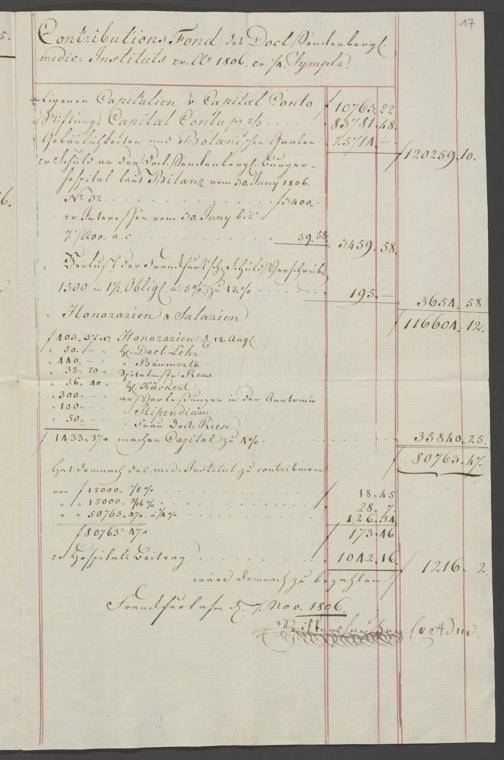 17
Contributions Fond des Doct. Senckenbergl.
medic. Instituts 1806. Simpla.
Eigenen Capitalien Capital Conto f 10763.22
Stiftungs Capital Conto 83781.48.
Gebäulichkeiten und Botanischen Garten 25714.— f 120259.10.
Schuld an den Doct. Senckenbergl. Bürger-
hospital laut Bilanz vom 30. Juny 1806.
No. 32 f 3400.—
Interessen vom 30. Juny bis
7. Nov. a. c. 59.58 3459.58.
Verlust der Frankfurtsch. Schuldverschreib.
1500 in Oblig. 195.— 3654.58
Honorarien & Salarien f 116604.12.
f 403.37 Honorarien
50.— H. Doct. Lehr
440.— Bäumerth
33.20 Spitalmstr. Reus
56.40 H. Kackert
300.— Vorlesungen in der Anatomie
100.— Stipendium
50.— Frau Doct. Riese
f 1433.37 machen Capital zu 4% 35840.25.
f 80763.47.
Hat demnach das med. Institut zu contribuiren
von f 15000. 18.45
15000. 28.7
50763.47 126.54
f 80763.47 f 173.46
Hospitals Beitrag 1042.16 f 1216.2
wäre demnach zu bezahlen
Frankfurt a/m d. 7. Nov. 1806.